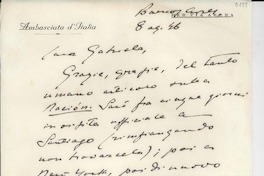 Ambasciata d'Italia
Buenos Aires
8 ag. 46
Cara Gabriela,
Grazie, grazie, del tanto
umano articolo sulla
Nación. Sarò fra cinque giorni
in visita ufficiale a
Santiago (rimpiangendo
non trovarcela); poi a
New York, poi di nuovo